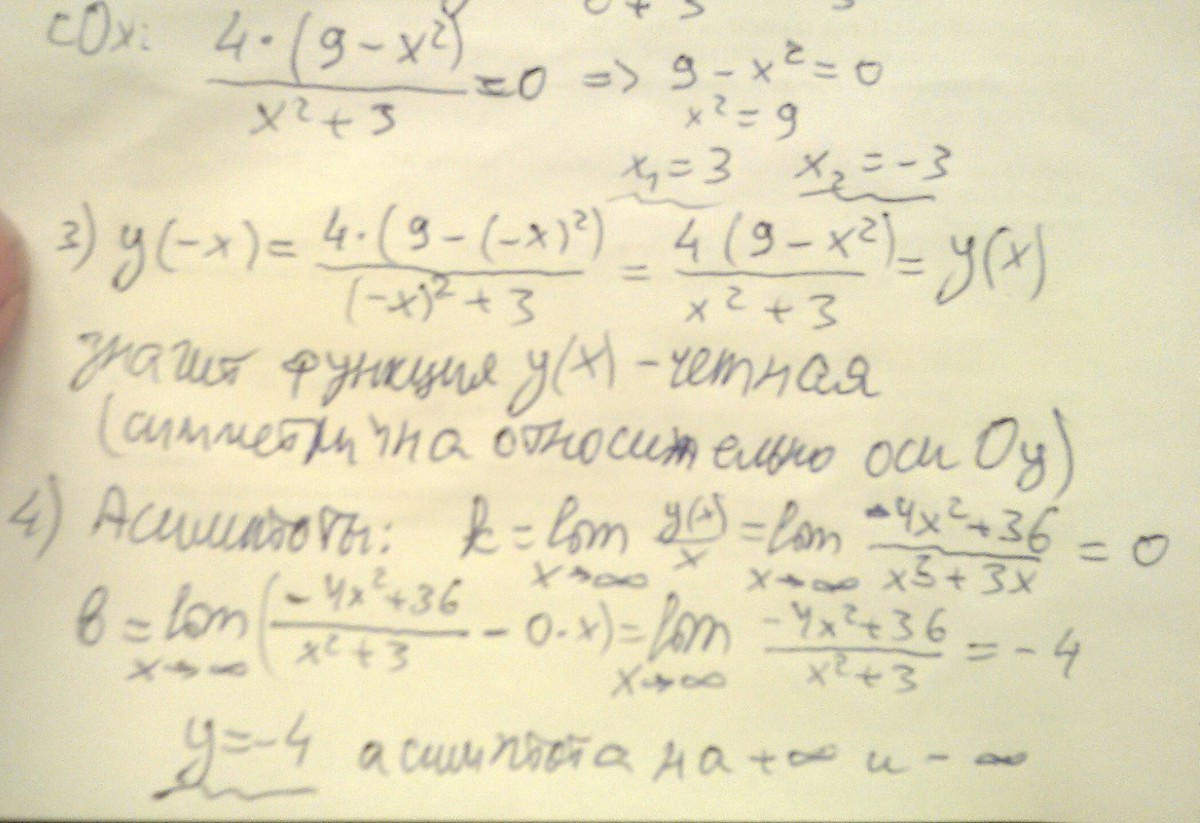 с Ox: 4·(9-x²)/(x²+3) = 0 => 9-x² = 0
x² = 9
x₁ = 3 x₂ = -3
3) y(-x) = 4·(9-(-x)²)/((-x)²+3) = 4(9-x²)/(x²+3) = y(x)
значит функция y(x) - четная
(симметрична относительно оси Oy)
4) Асимптоты: k = lim x→∞ y(x)/x = lim x→∞ (-4x²+36)/(x³+3x) = 0
b = lim x→∞ ((-4x²+36)/(x²+3) - 0·x) = lim x→∞ (-4x²+36)/(x²+3) = -4
y = -4 асимптота на +∞ и -∞